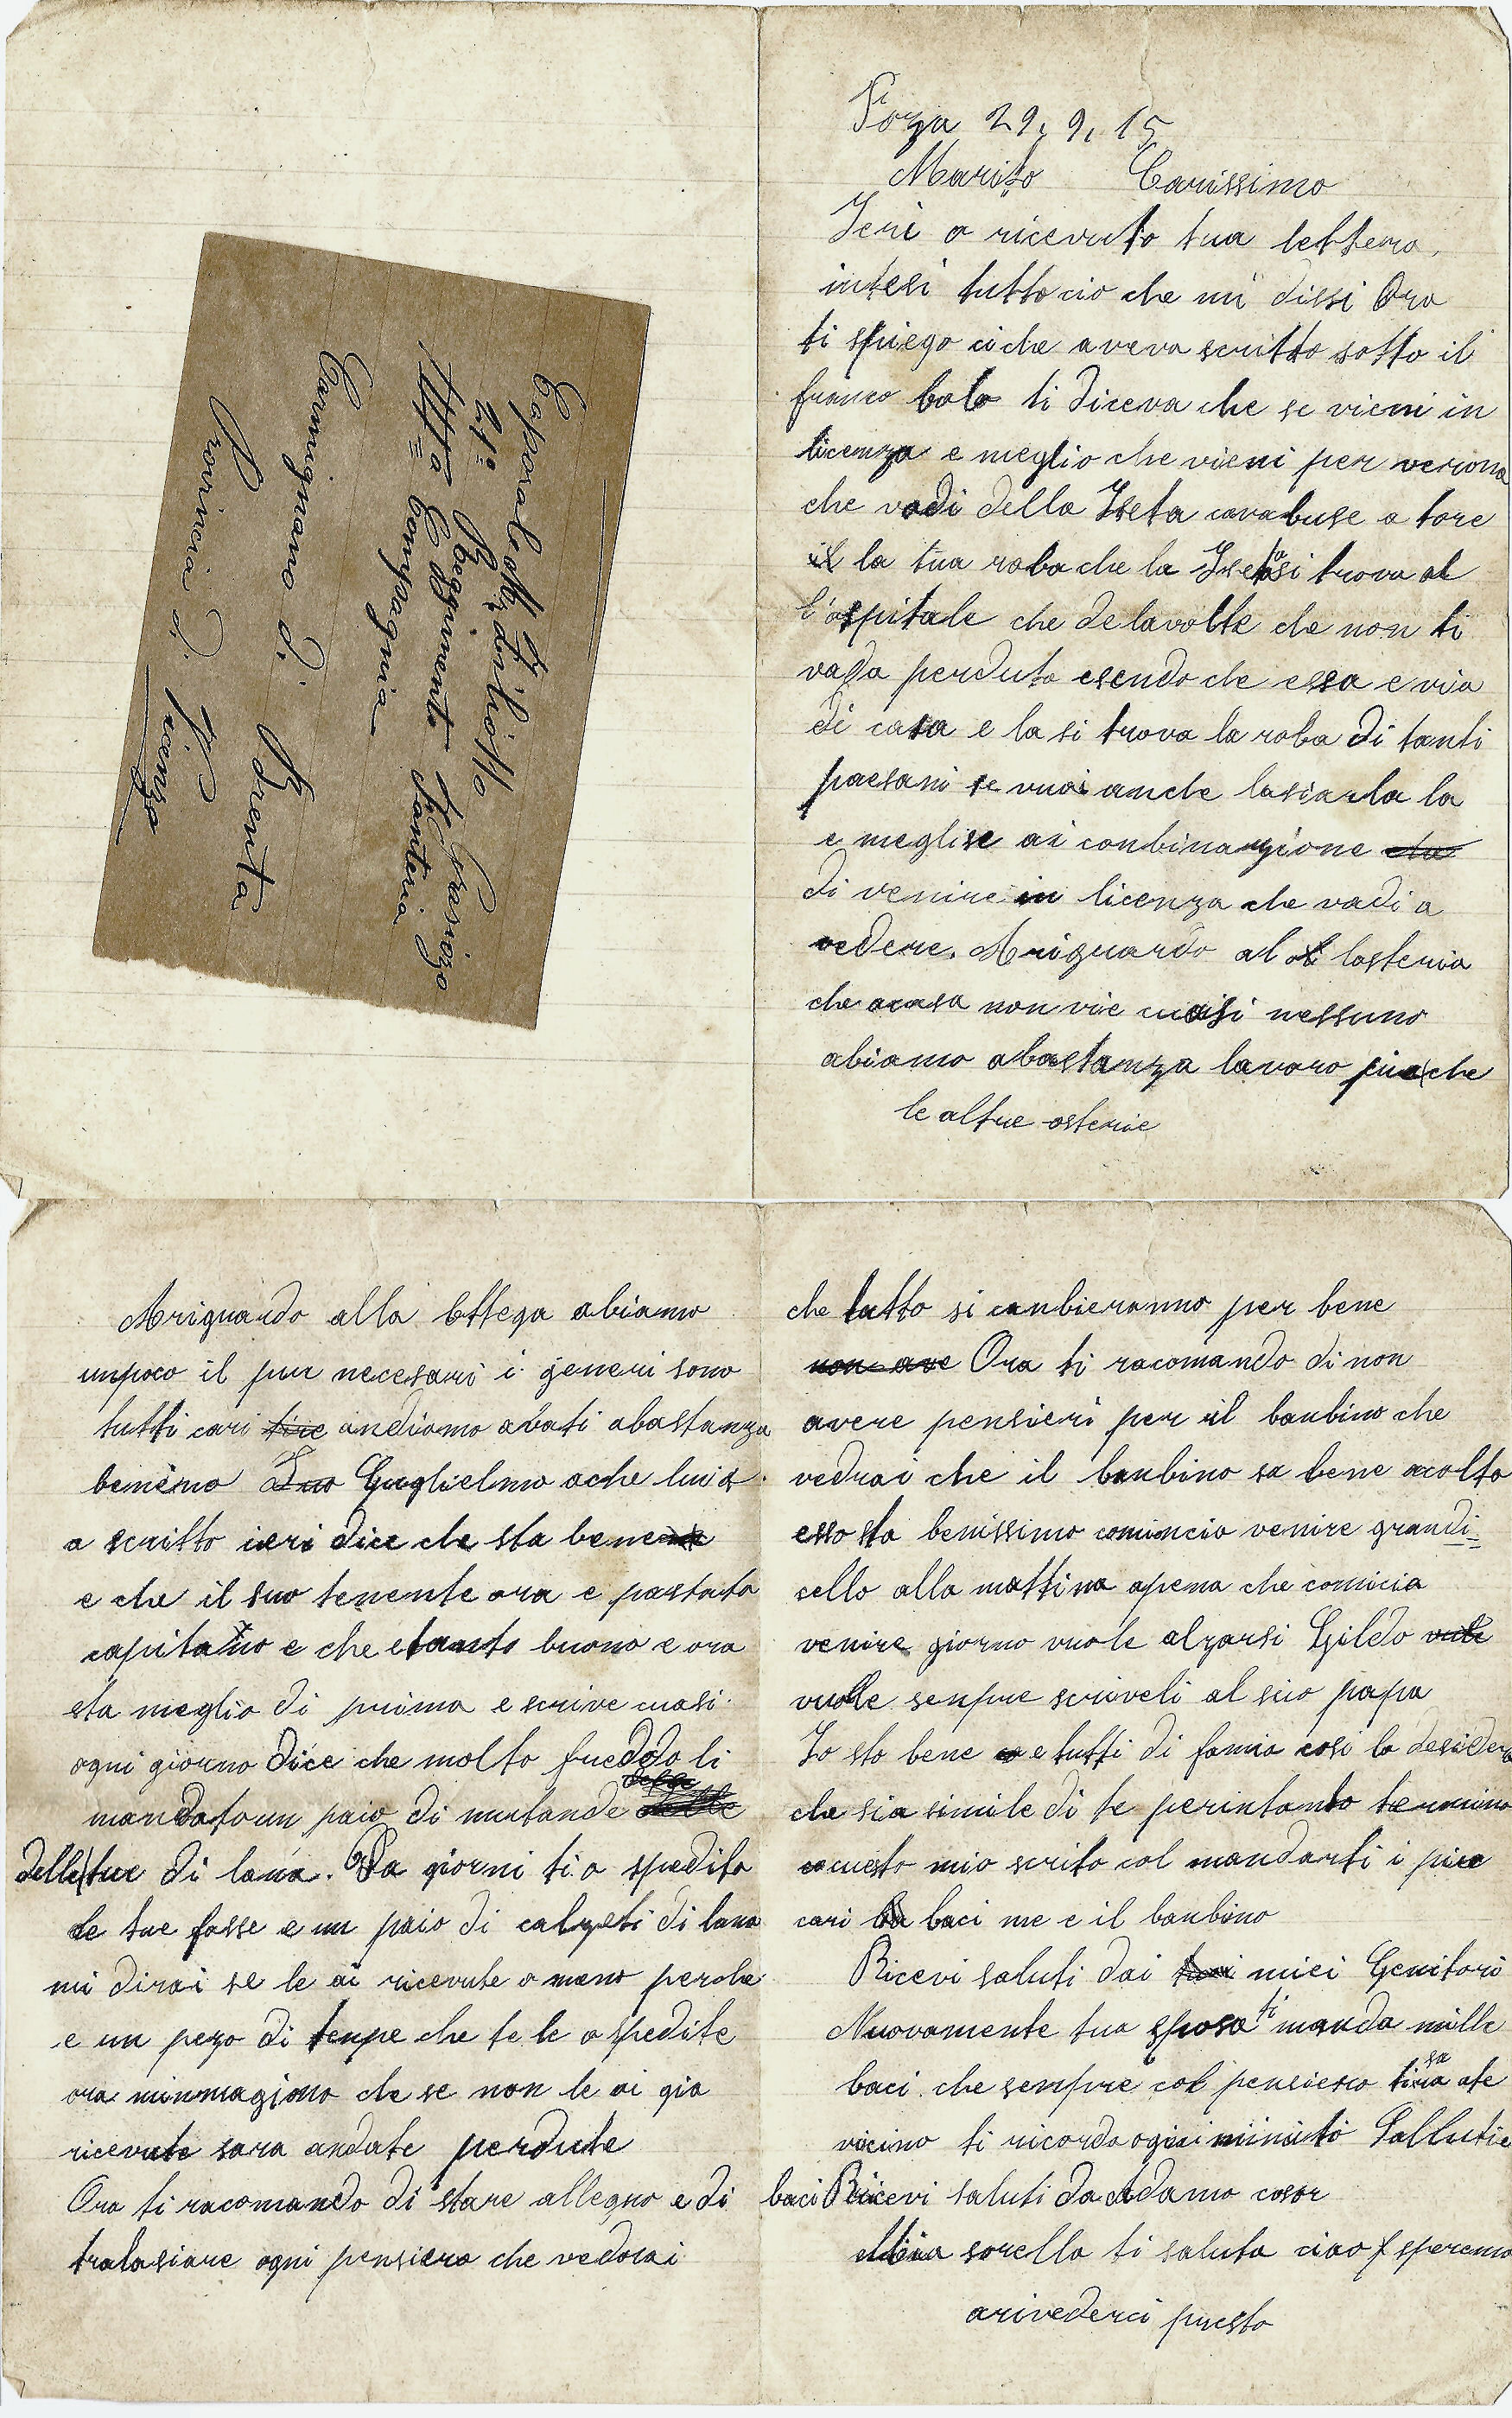 Foza 29, 9, 15
Marito Carissimo
Ieri o ricevuto tua lettera,
intesi tutto cio che mi dissi Ora
ti spiego ciche aveva scritto sotto il
franco bolo ti diceva che se vieni in
licenza e meglio che vieni per verona
che vadi della Iseta carabuse a tore
la tua roba che la Iseta si trova al
l'ospitale che de lavolte che non ti
vada perduta esendo che essa e via
di casa e la si trova la roba di tanti
paesani se vuoi anche lasiarla la
e meglise ai conbinazione che
di venire in licenza che vadi a
vedere. Ariguardo al losteria
che acasa non vie cuasi nessuno
abiamo abastanza lavoro piu che
le altre osterie
Caporale Mag.
21º Regimento Fanteria
Compagnia
Carmignano di Brenta
Provincia di Vicenza
Ariguardo alla bttega abiamo
unpoco il pur necesari i generi sono
tutti cari andiamo avati abastanza
benemo Guglielmo ache lui a
a scritto ieri dice che sta bene
e che il suo tenente ora e pastato
capitano e che etanto buono e ora
sta meglio di prima e scrive cuasi
ogni giorno dice che molto fredo lo li
mandato un paio di mutande
delle tue di lana. Da giorni ti o spedito
le tue fasse e un paio di calzeti di lana
mi dirai se le ai ricevute o meno perche
e un pezo di tenpe che te le o spedite
ora minmagiono che se non le ai gia
ricevute sara andate perdute
Ora ti racomando di stare allegro e di
tralasiare ogni pensiero che vedrai
che tutto si canbieranno per bene
non ave Ora ti racomando di non
avere pensieri per il banbino che
vedrai che il banbino sa bene acolto
esso sta benissimo comincia venire grandi=
cello alla mattina apena che comicia
venire giorno vuole alzarsi Gildo vule
vuolle senpre scriveli al suo papa
Io sto bene e tutti di famia cosi lo desidera
che sia simile di te perintanto termino
cuesto mio scrito col mandarti i piu
cari baci me e il banbino
Ricevi saluti dai miei Genitori
Nuovamente tua sposa ti manda mille
baci che sempre col pensiero sa ate
vicino ti ricordo ogni minuto Salluti e
baci Ricevi saluti da Adamo cosor
Mia sorella ti saluta ciao speremo
arivederci presto